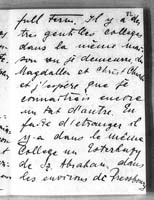 full Term. Il y a de
très gentilles collèges
dans la même mai-
son où je demeure, de
Magdallen et Christ Church
et j'espère que je
connaîtrais encore
un tas d'autre. En
faite d'étranger il
y-a dans le même
College un Esterhazy
de Sz. Abraham, dans
les environs de Pressburg